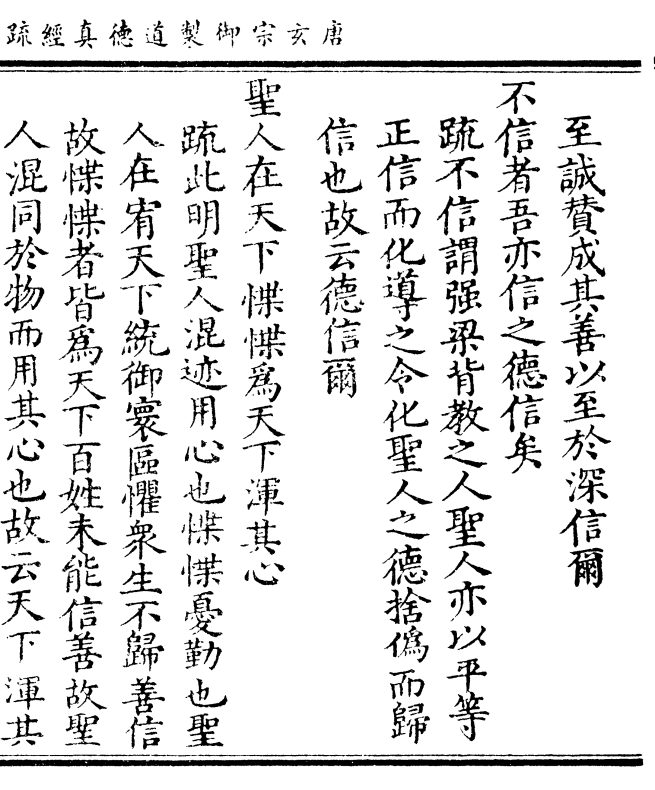 唐玄宗御製道德真經疏
至誠賛成其善以至於深信爾
不信者吾亦信之德信矣
䟽不信謂强梁背教之人聖人亦以平等
正信而化導之令化聖人之德捨僞而歸
信也故云德信爾
聖人在天下惵惵爲天下渾其心
䟽此明聖人混迹用心也惵惵憂勤也聖
人在宥天下統御寰區懼衆生不歸善信
故惵惵者皆爲天下百姓未能信善故聖
人混同於物而用其心也故云天下渾其